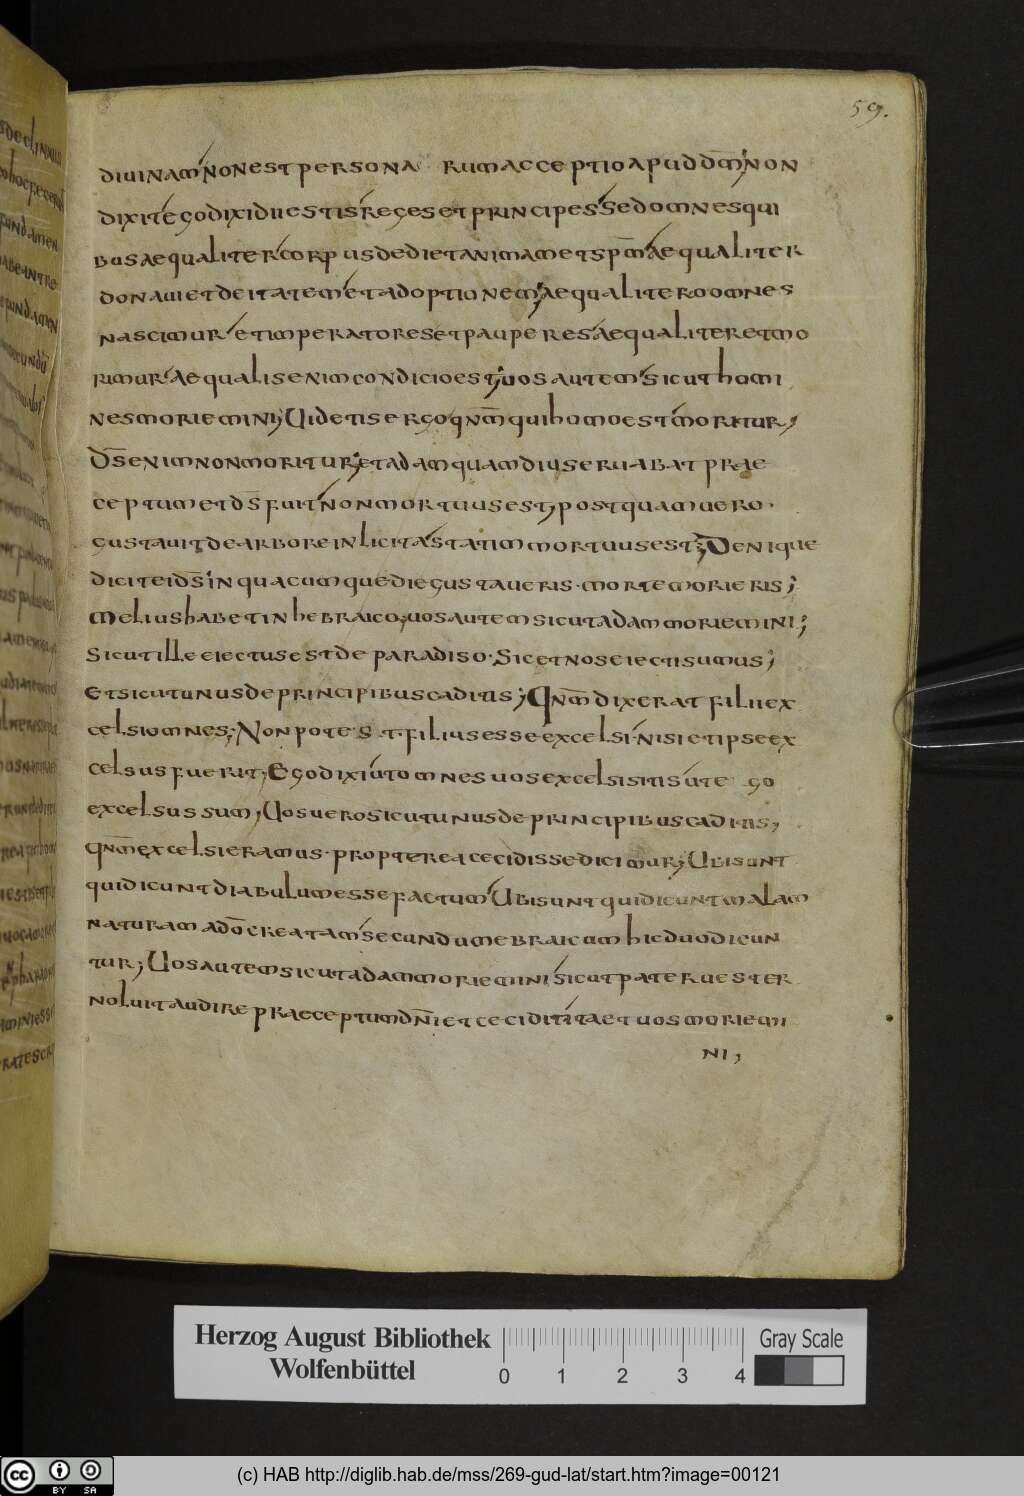 59.
diuinam non est persona rum acceptio apud dm̄ non
dixit ego dixi dii estis reges et principes sed omnes qui
bus aequaliter corpus dedi et animam et spm̄ aequaliter
donaui et deitatem et adoptionem; aequaliter omnes
nascimur et imperatores et pauperes aequaliter et mo
rimur aequalis enim condicio est; uos autem sicut homi
nes moriemini; Uidetis ergo qnm̄ qui homo est moritur;
Ds̄ enim non moritur; et adam quamdiu seruabat prae
ceptum et ds̄ fuit non mortuus est; postquam uero
gustauit de arbore inlicita statim mortuus est; Denique
dicit ei ds̄ in quacumque die gustaueris · morte morieris;
Melius habet in hebraico; uos autem sicut adam moriemini;
Sicut ille eiectus est de paradiso · Sic et nos eiecti sumus;
Et sicut unus de principibus caditis; Qnm̄ dixerat filii ex
celsi omnes; Non potest filius esse excelsi nisi et ipse ex
celsus fuerit; Ego dixi ut omnes uos excelsi sitis ut ego
excelsus sum; Uos uero sicut unus de principibus caditis;
qnm̄ excelsi eramus · propterea cecidisse dicimur; Ubi sunt
qui dicunt diabulum esse factum Ubi sunt qui dicunt malam
naturam a dō creatam secundum ebraicum hic duo dicun
tur; Uos autem sicut adam moriemini sicut pater uester
noluit audire praeceptum dn̄i et cecidit ita et uos moriemi
ni;
Herzog August Bibliothek
Wolfenbüttel
0 1 2 3 4
Gray Scale
cc BY SA
(c) HAB http://diglib.hab.de/mss/269-gud-lat/start.htm?image=00121